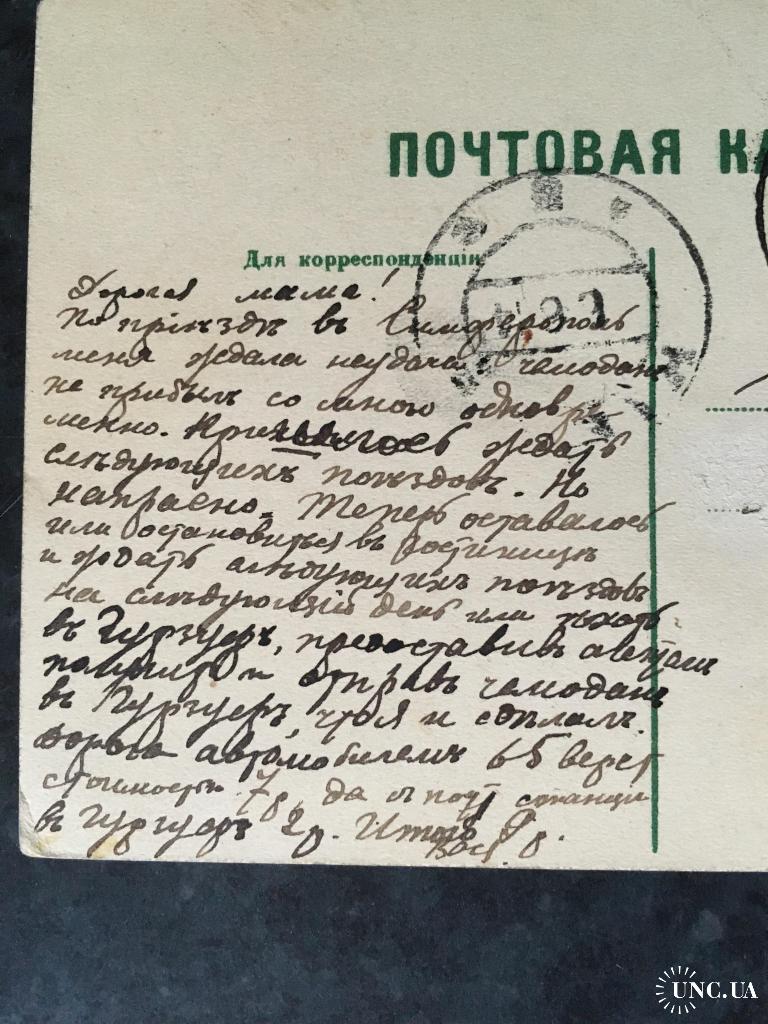 ПОЧТОВАЯ КА
Для корреспонденціи
Дорогая мама!
По пріѣздѣ въ Симферополь
меня ждала неудача. Чемоданъ
не прибылъ со мною одновре-
менно. Пришлось ждать
слѣдующихъ поѣздовъ. Но
напрасно. Теперь оставалось
или остановиться въ гостиницѣ
и ждать слѣдующихъ поѣздовъ
на слѣдующій день или ѣхать
въ Гурзуфъ, предоставивъ
отправ чемоданъ
въ Гурзуфъ, что я и сдѣлалъ.
Дорога автомобилемъ 65 верст
стоимость 7р, да съ почт станціи
въ Гурзуфъ 2р. Итого 9 р.
Вася.
UNC.UA